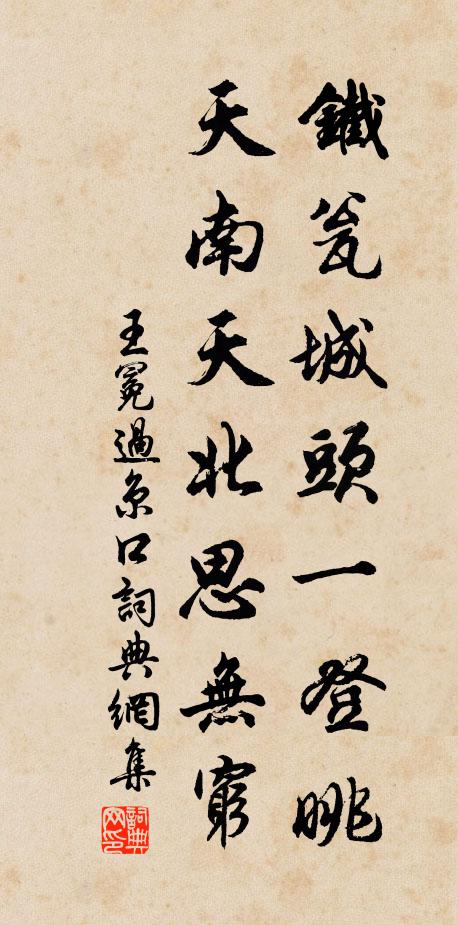 鐵瓮城頭一登眺
天南天北思無窮
王冕過京口詞典網集
詞典网印